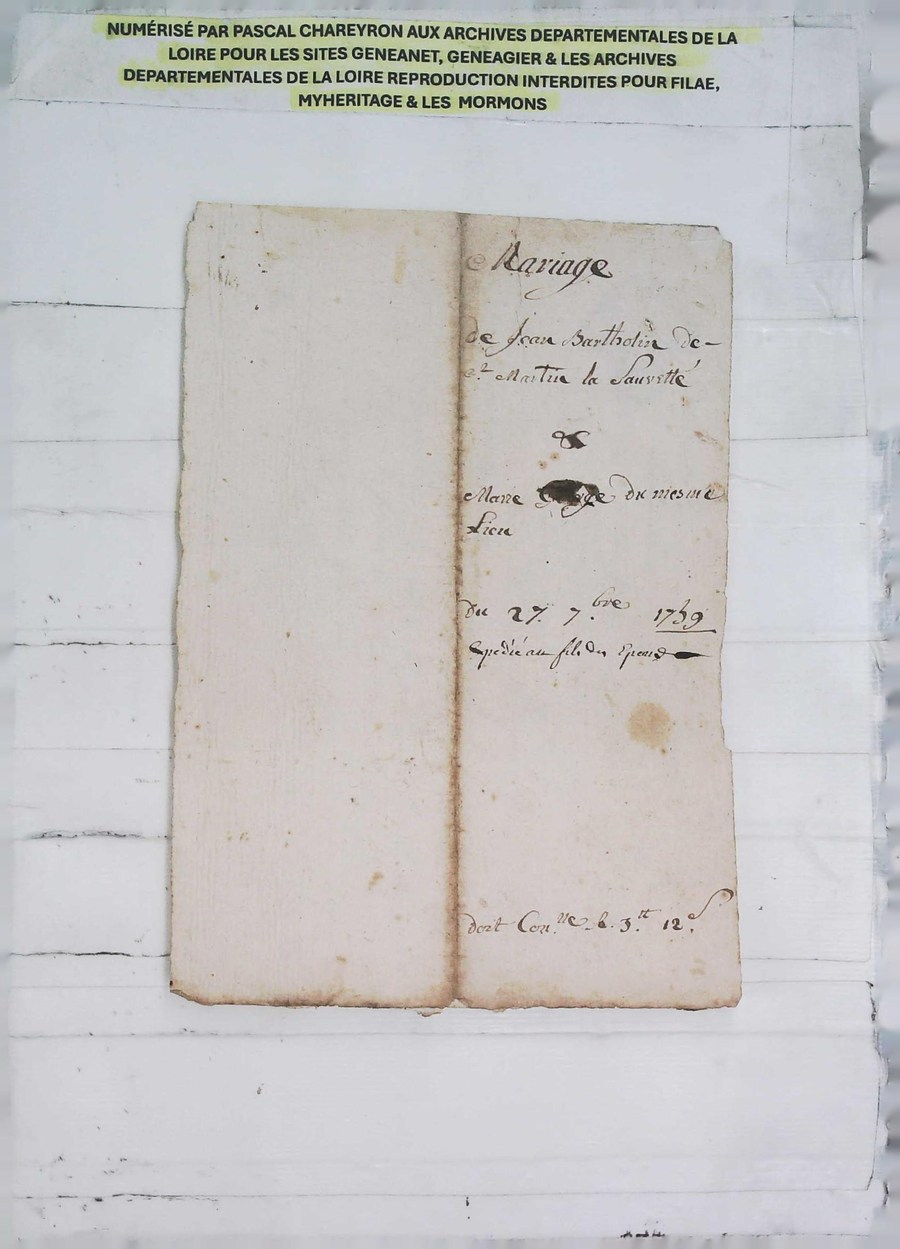 NUMÉRISÉ PAR PASCAL CHAREYRON AUX ARCHIVES DEPARTEMENTALES DE LA
LOIRE POUR LES SITES GENEANET, GENEAGIER & LES ARCHIVES
DEPARTEMENTALES DE LA LOIRE REPRODUCTION INTERDITES POUR FILAE,
MYHERITAGE & LES MORMONS
Mariage
de Jean Bartholin de-
St Martin la Sauveté
&
Marie du mesme
Lieu
du 27. 7.bre 1759
Expédié au fils des Epoux
doit Con.lle 3.tt 12.s